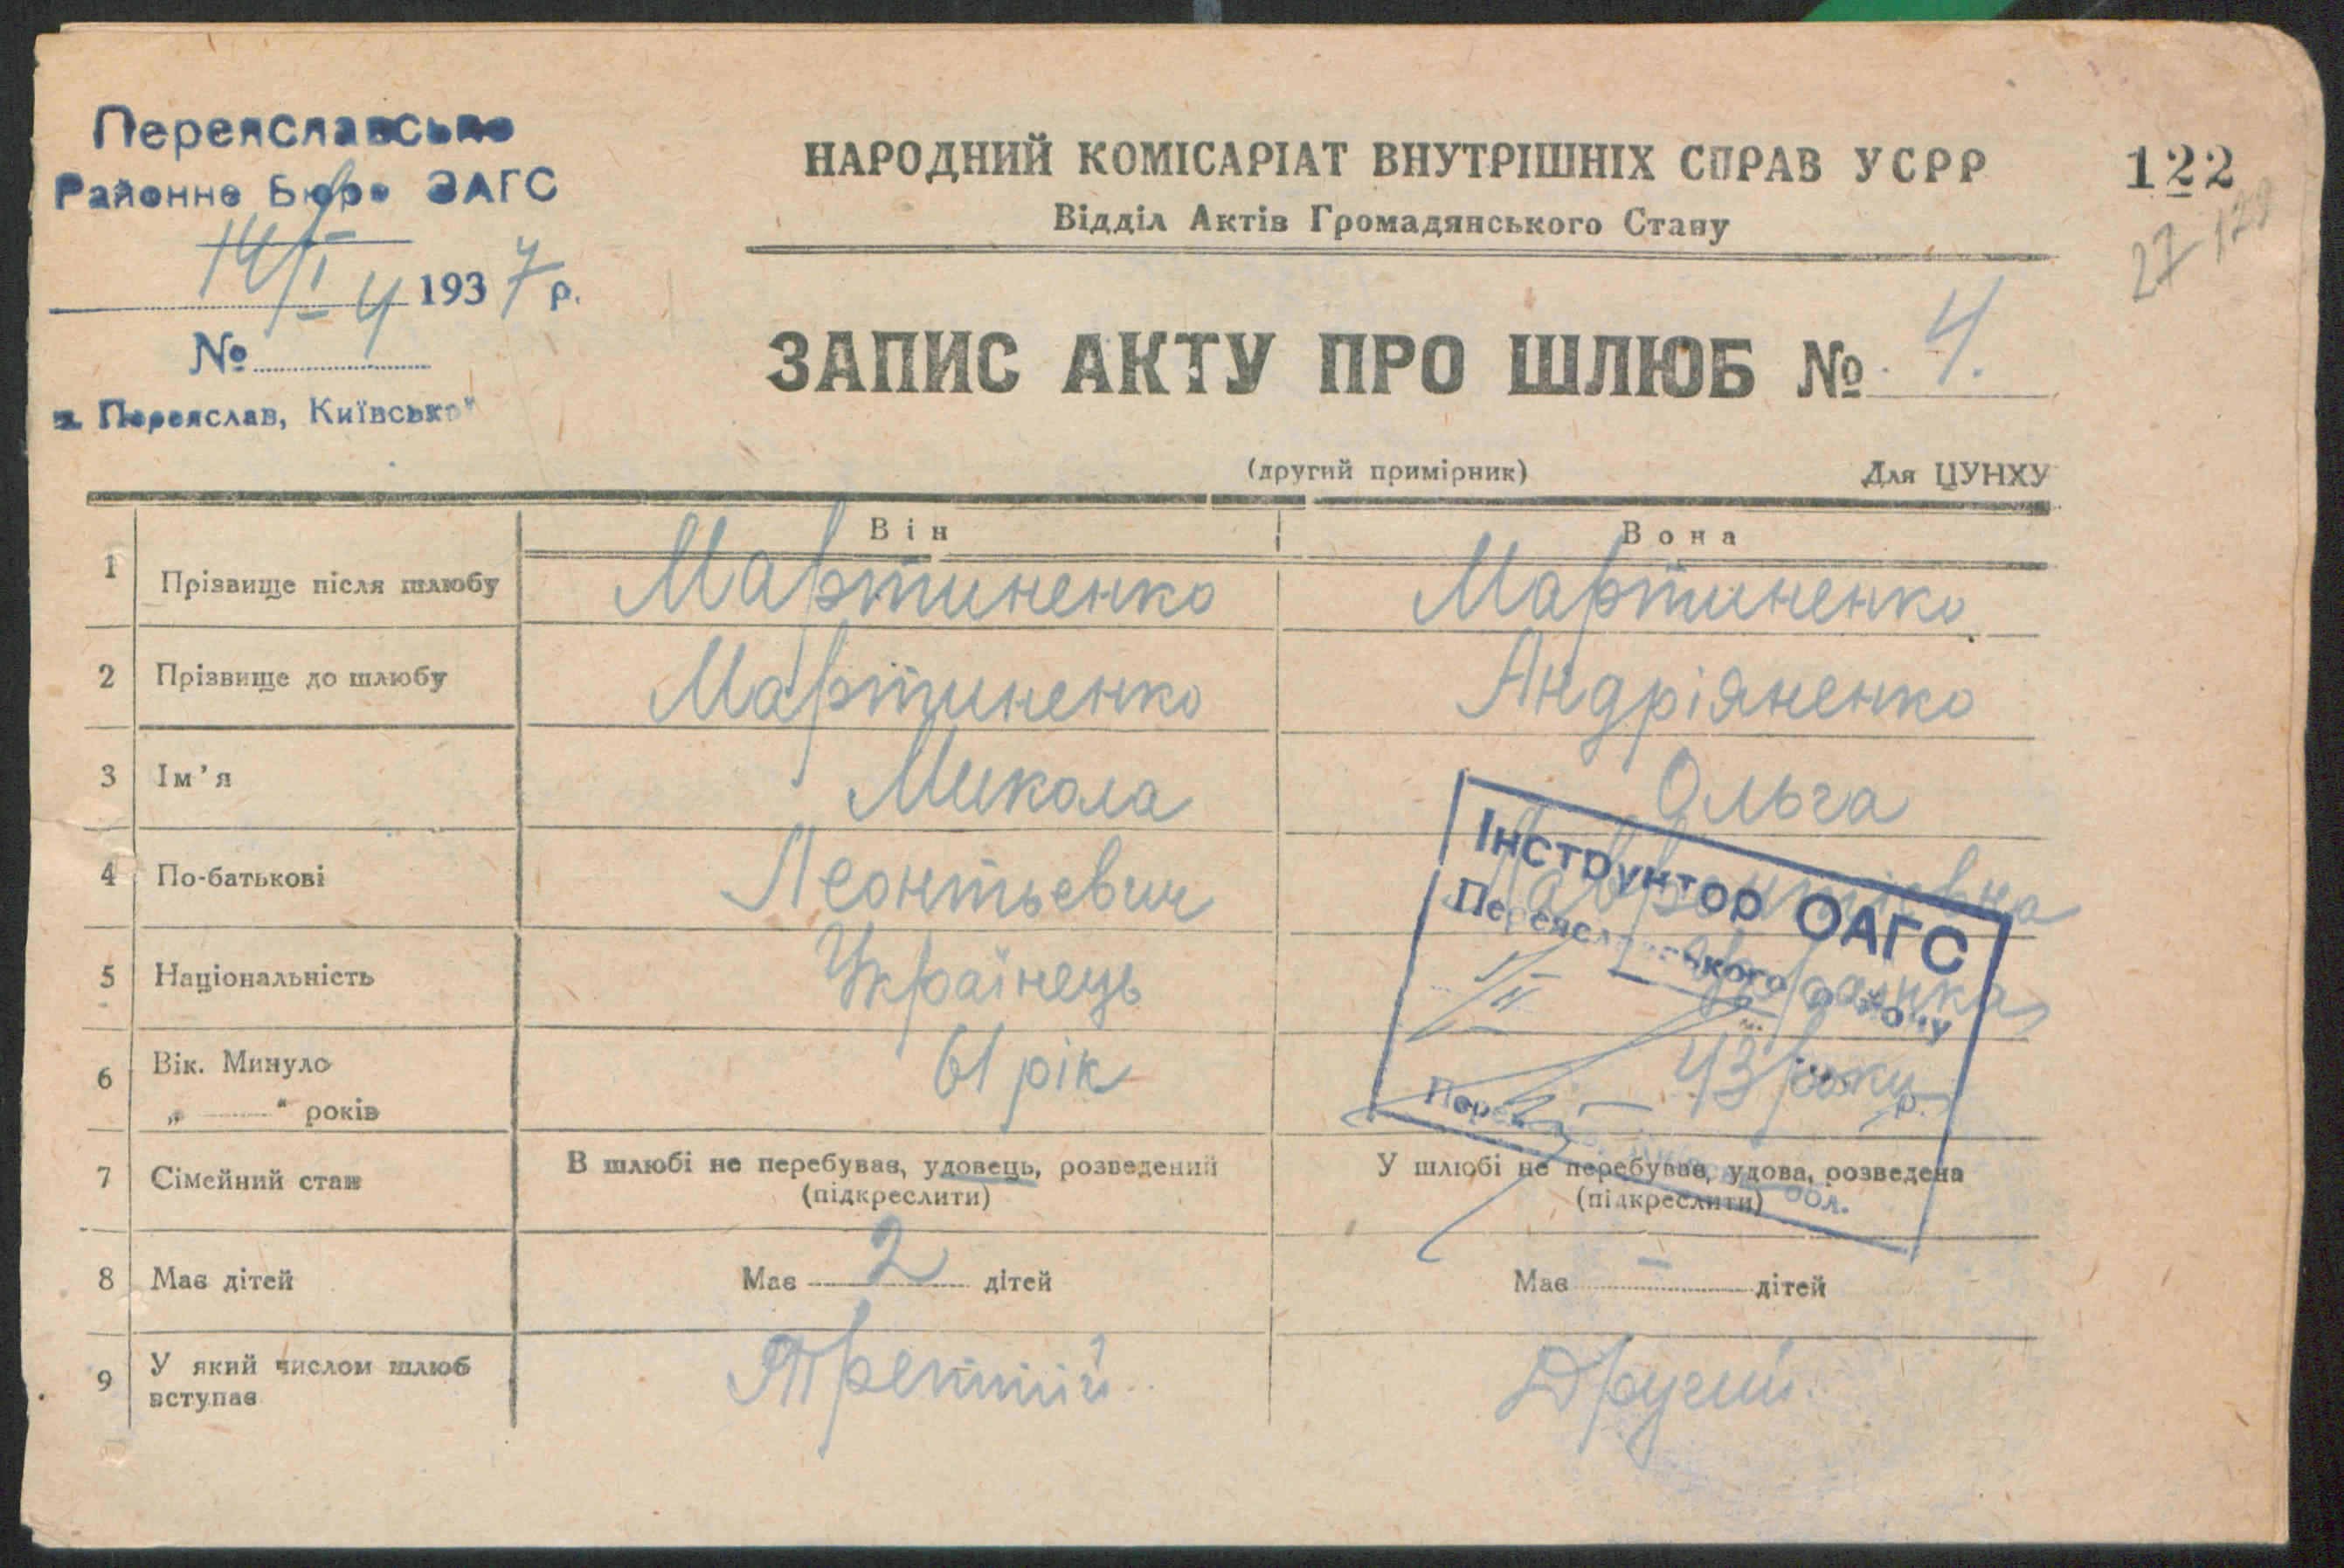 Переяславське
Районне Бюро ЗАГС
14/I 1937 р.
№ 4
м. Переяслав, Київської
НАРОДНИЙ КОМІСАРІАТ ВНУТРІШНІХ СПРАВ УСРР
Відділ Актів Громадянського Стану
122
27 122
ЗАПИС АКТУ ПРО ШЛЮБ № 4.
(другий примірник) Для ЦУНХУ
Він Вона
1 Прізвище після шлюбу Мартиненко Мартиненко
2 Прізвище до шлюбу Мартиненко Андріяненко
3 Ім’я Микола Ольга
4 По-батькові Леонтьевич
5 Національність Українець Українка
6 Вік. Минуло 61 рік 43 роки
„ “ років
7 Сімейний стан В шлюбі не перебував, удовець, розведений У шлюбі не перебував, удова, розведена
(підкреслити) (підкреслити)
8 Має дітей Має 2 дітей Має – дітей
9 У який числом шлюб Третій Другий.
вступає
Інструктор ОАГС
Переяславського району
р.
обл.